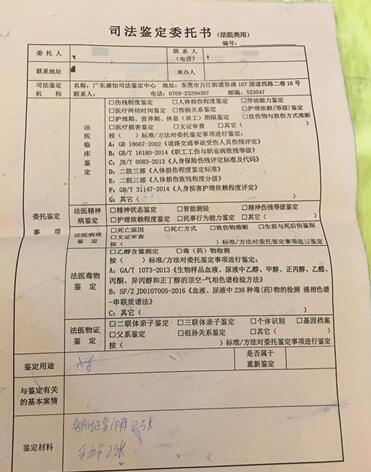 司法鉴定委托书(法医类用)
编号:
委 托 人
联 系 人
(电话)
联系地址
承办人
司法鉴定
机 构
名称:广东康怡司法鉴定中心 地址:东莞市万江街道谷涌107国道西路二巷16号
电话:0769-23299397 邮编:523047
委托鉴定
事 项
法医临床鉴定
□伤残程度鉴定 □人体损伤程度鉴定 □劳动能力鉴定
□医疗终结时间鉴定 □伤病关系鉴定 □护理依赖(等级)鉴定
□护理期、营养期、休息(误工)期限鉴定 □致伤物与致伤方式推断
□医疗损害鉴定 □文证审查 □其它( )
按( )标准/方法对委托鉴定事项进行鉴定:
A: GB 18667-2002《道路交通事故受伤人员伤残评定》
B: GB/T 16180-2014《职工工伤与职业病致残等级》
C: JR/T 0083-2013《人身保险伤残评定标准及代码》
D: 二院三部《人体损伤程度鉴定标准》
E: 二院三部《人体损伤致残程度分级》
F: GB/T 31147-2014《人身损害护理依赖程度评定》
G: 其它( )
法医精神
病鉴定
□精神状态鉴定 □智能测验 □精神伤残等级鉴定
□护理依赖程度鉴定 □民事行为能力鉴定 □其它( )
法医病理
鉴 定
□死亡原因 □死亡方式 □致伤物推断 □生前与死后伤鉴别
□文证审查 □其它( )
法医毒物
鉴 定
□乙醇含量测定 □毒(药)物检测
按( )标准/方法对委托鉴定事项进行鉴定:
A: GA/T 1073-2013《生物样品血液、尿液中乙醇、甲醇、正丙醇、乙醛、
丙酮、异丙醇和正丁醇的顶空-气相色谱检验方法》
B: SF/Z JD0107005-2016《血液、尿液中238种毒(药)物的检测 液相色谱
-串联质谱法》
C: 其它( )
法医物证
鉴 定
□二联体亲子鉴定 □三联体亲子鉴定 □个体识别 □基因档案
□父系鉴定 □祖孙关系鉴定 □其它( )
按( )标准/方法对委托鉴定事项进行鉴定
鉴定用途
是否属于
重新鉴定
与鉴定有关
的基本案情
鉴定材料